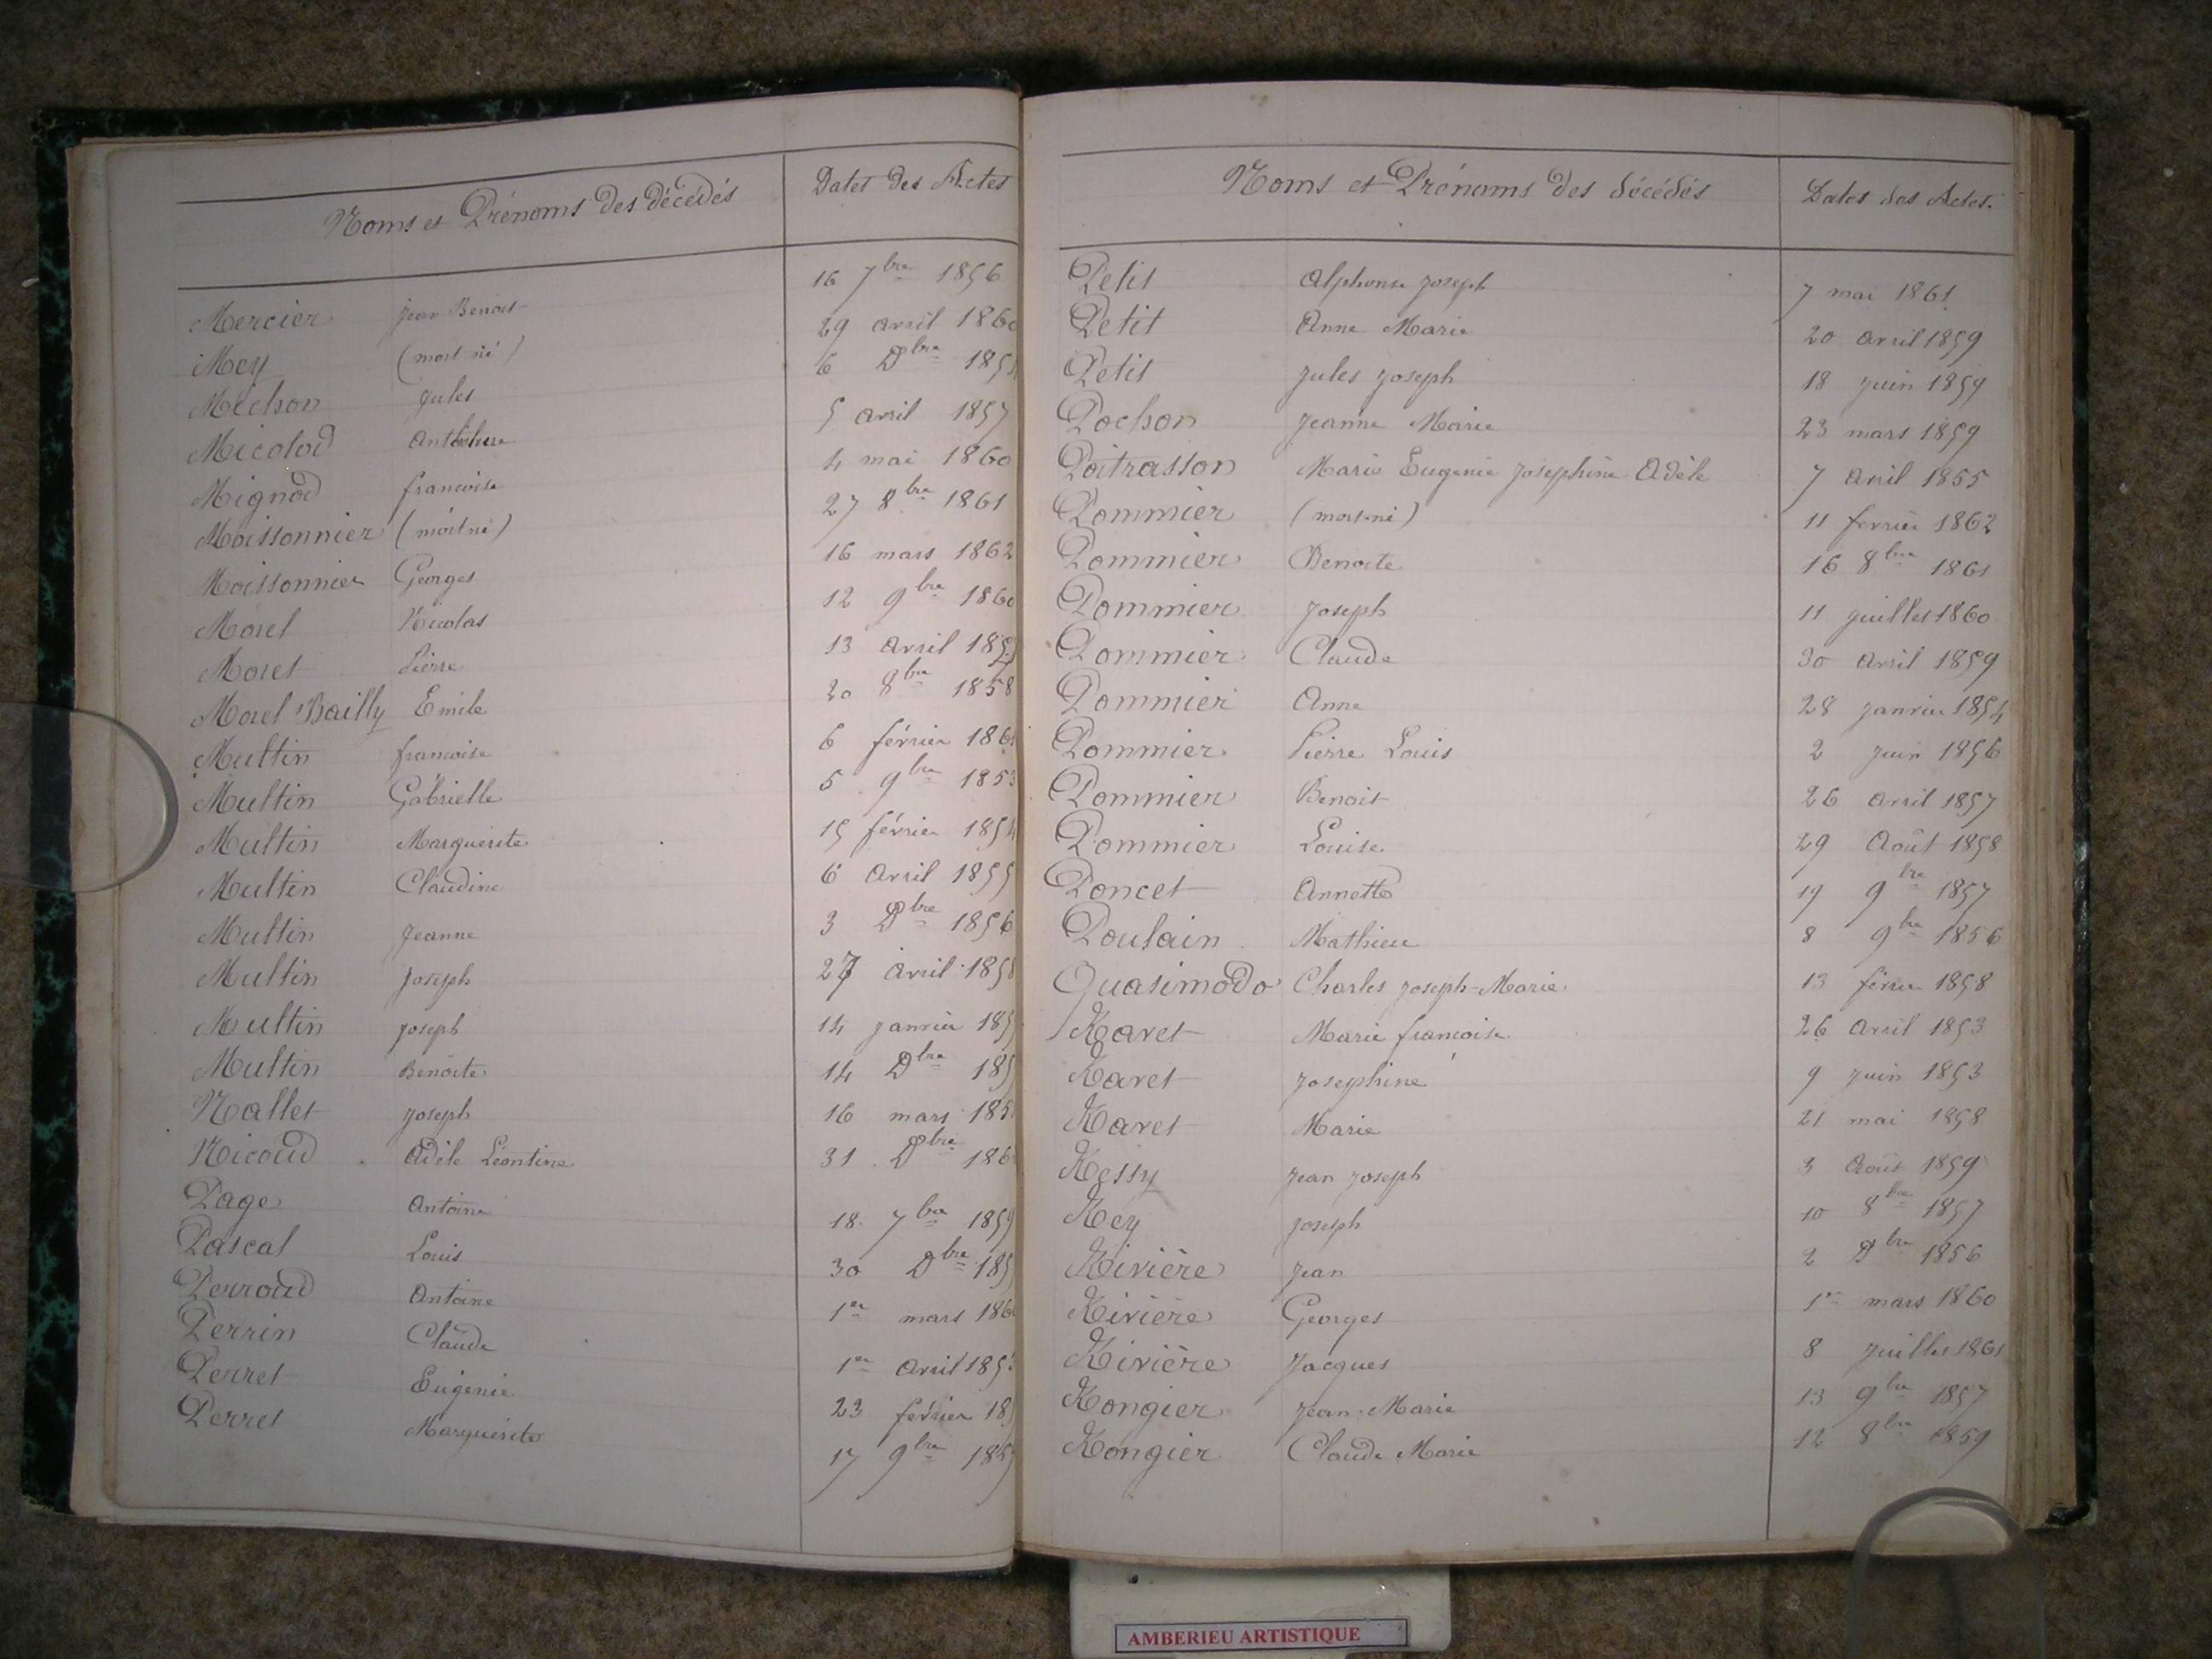 Noms et Prénoms des décédés Dates des Actes
Mercier Jean Benoit 16 7bre 1856
Mey (mort né) 29 avril 1860
Michon Jules 6 Dbre 185
Micolod Anthelme 5 avril 1857
Mignod francoise 4 mai 1860
Moissonnier (mort né) 27 8bre 1861
Moissonnier Georges 16 mars 1862
Morel Nicolas 12 9bre 1860
Morel Pierre 13 avril 185
Morel Bailly Emile 20 8bre 1858
Multin francoise 6 février 186
Multin Gabrielle 5 9bre 1853
Multin Marguerite 15 février 1854
Multin Claudine 6 avril 1855
Multin Jeanne 3 Dbre 1856
Multin Joseph 27 avril 1858
Multin Joseph 14 janvier 185
Multin Benoite 14 Dbre 185
Nallet Joseph 16 mars 185
Nicoud Adèle Léontine 31 Dbre 186
Page Antoine 18 7bre 1859
Pascal Louis 30 Dbre 185
Perroud Antoine 1er mars 186
Perrin Claude 1er avril 185
Perret Eugénie 23 février 18
Perret Marguerite 17 9bre 185
Noms et Prénoms des décédés Dates des Actes.
Petit Alphonse Joseph 7 mai 1861
Petit Anne Marie 20 avril 1859
Petit Jules Joseph 18 juin 1859
Pochon Jeanne Marie 23 mars 1859
Poitrasson Marie Eugenie Josephine Adèle 7 avril 1855
Pommier (mort-né) 11 fevrier 1862
Pommier Benoite 16 8bre 1861
Pommier Joseph 11 juillet 1860
Pommier Claude 30 avril 1859
Pommier Anne 28 janvier 1854
Pommier Pierre Louis 2 juin 1856
Pommier Benoit 26 avril 1857
Pommier Louise 29 Août 1858
Poncet Annette 19 9bre 1857
Poulain Mathieu 8 9bre 1856
Quasimodo Charles Joseph-Marie 13 février 1858
Ravet Marie francoise 26 avril 1853
Ravet Josephine 9 juin 1853
Ravet Marie 21 mai 1858
Ressy Jean Joseph 3 Août 1859
Rey Joseph 10 8bre 1857
Rivière Jean 2 Dbre 1856
Rivière Georges 1er mars 1860
Rivière Jacques 8 juillet 1861
Rongier Jean-Marie 13 9bre 1857
Rongier Claude Marie 12 8bre 1859
AMBERIEU ARTISTIQUE